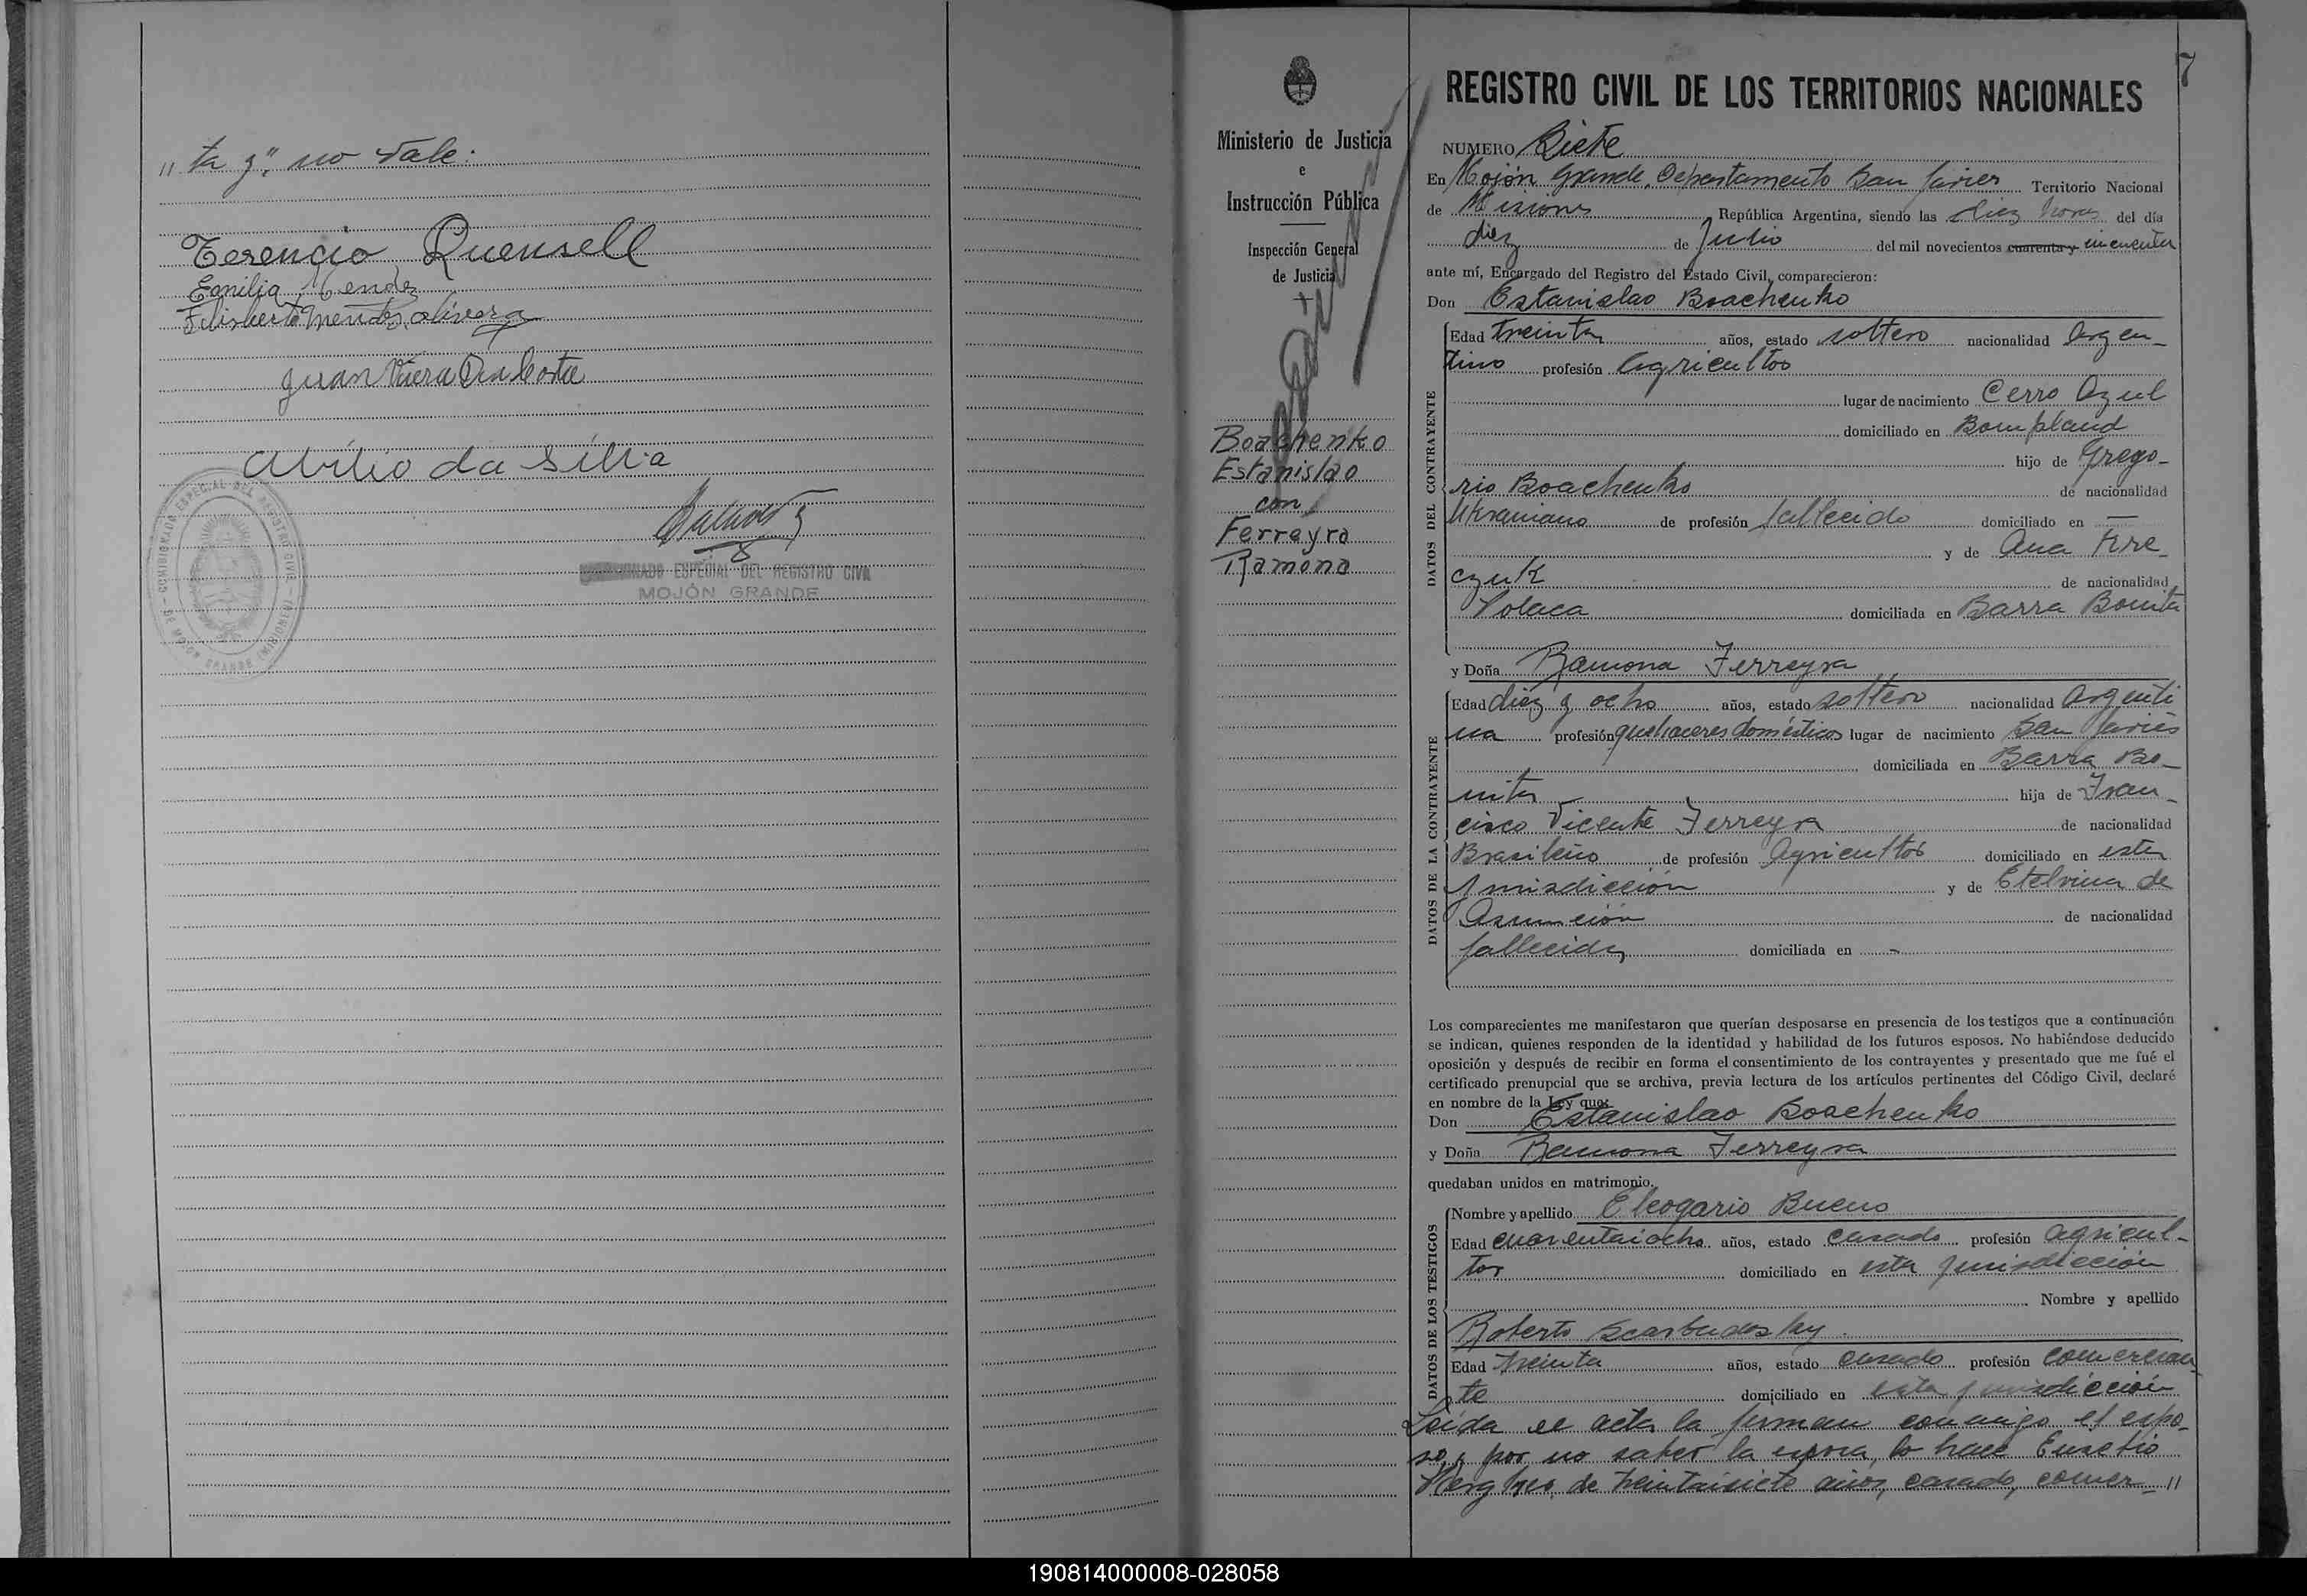 "ta y", no vale:
Terencio Quensell
Emilia Mendez
Filisberto Mendes olivera
Juan Viera Da Costa
Abilio da Silva
COMISIONADO ESPECIAL DEL REGISTRO CIVIL
MOJÓN GRANDE
7
Ministerio de Justicia
e
Instrucción Pública
Inspección General
de Justicia
Boachenko
Estanislao
con
Ferreyra
Ramona
REGISTRO CIVIL DE LOS TERRITORIOS NACIONALES
NUMERO Siete
En Mojón Grande, Departamento San Javier Territorio Nacional
de Misiones República Argentina, siendo las diez horas del día
diez de Julio del mil novecientos cuarenta y cincuenta
ante mí, Encargado del Registro del Estado Civil, comparecieron:
Don Estanislao Boachenko
DATOS DEL CONTRAYENTE
Edad treinta años, estado soltero nacionalidad Argen-
tino profesión Agricultor
lugar de nacimiento Cerro Azul
domiciliado en Bompland
hijo de Grego-
rio Boachenko de nacionalidad
Ukraniano de profesión fallecido domiciliado en —
y de Ana
czuk de nacionalidad
Polaca domiciliada en Barra Bonita
y Doña Ramona Ferreyra
DATOS DE LA CONTRAYENTE
Edad diez y ocho años, estado soltero nacionalidad Argenti
na profesión quehaceres domésticos lugar de nacimiento San Javier
domiciliada en Barra Bo-
nita hija de Fran-
cisco Vicente Ferreyra de nacionalidad
Brasileño de profesión Agricultor domiciliado en esta
Jurisdicción y de Etelvina de
Asunción de nacionalidad
fallecida domiciliada en -
Los comparecientes me manifestaron que querían desposarse en presencia de los testigos que a continuación
se indican, quienes responden de la identidad y habilidad de los futuros esposos. No habiéndose deducido
oposición y después de recibir en forma el consentimiento de los contrayentes y presentado que me fué el
certificado prenupcial que se archiva, previa lectura de los artículos pertinentes del Código Civil, declaré
en nombre de la Ley que:
Don Estanislao Boachenko
y Doña Ramona Ferreyra
quedaban unidos en matrimonio.
DATOS DE LOS TESTIGOS
Nombre y apellido Eleogario Bueno
Edad cuarentaiocho años, estado casado profesión Agricul-
tor domiciliado en esta Jurisdicción
Nombre y apellido
Roberto
Edad treinta años, estado casado profesión comercian
te domiciliado en esta jurisdicción
Leída el acta la firman conmigo el espo-
so y por no saber la esposa, lo hace
de treintaisiete años, casado, comer-"
190814000008-028058